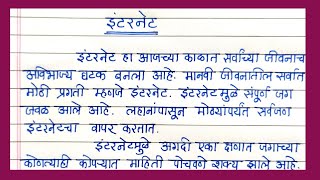 इंटरनेट
इंटरनेट हा आजच्या काळात सर्वांच्या जीवनाच
अविभाज्य घटक बनला आहे. मानवी जीवनातील सर्वात
मोठी प्रगती म्हणजे इंटरनेट. इंटरनेटमुळे संपूर्ण जग
जवळ आले आहे. लहानांपासून मोठ्यांपर्यंत सर्वजण
इंटरनेटचा वापर करतात.
इंटरनेटमुळे अगदी एका क्षणात जगाच्या
कोणत्याही कोपऱ्यात माहिती पोचवणे शक्य झाले आहे.